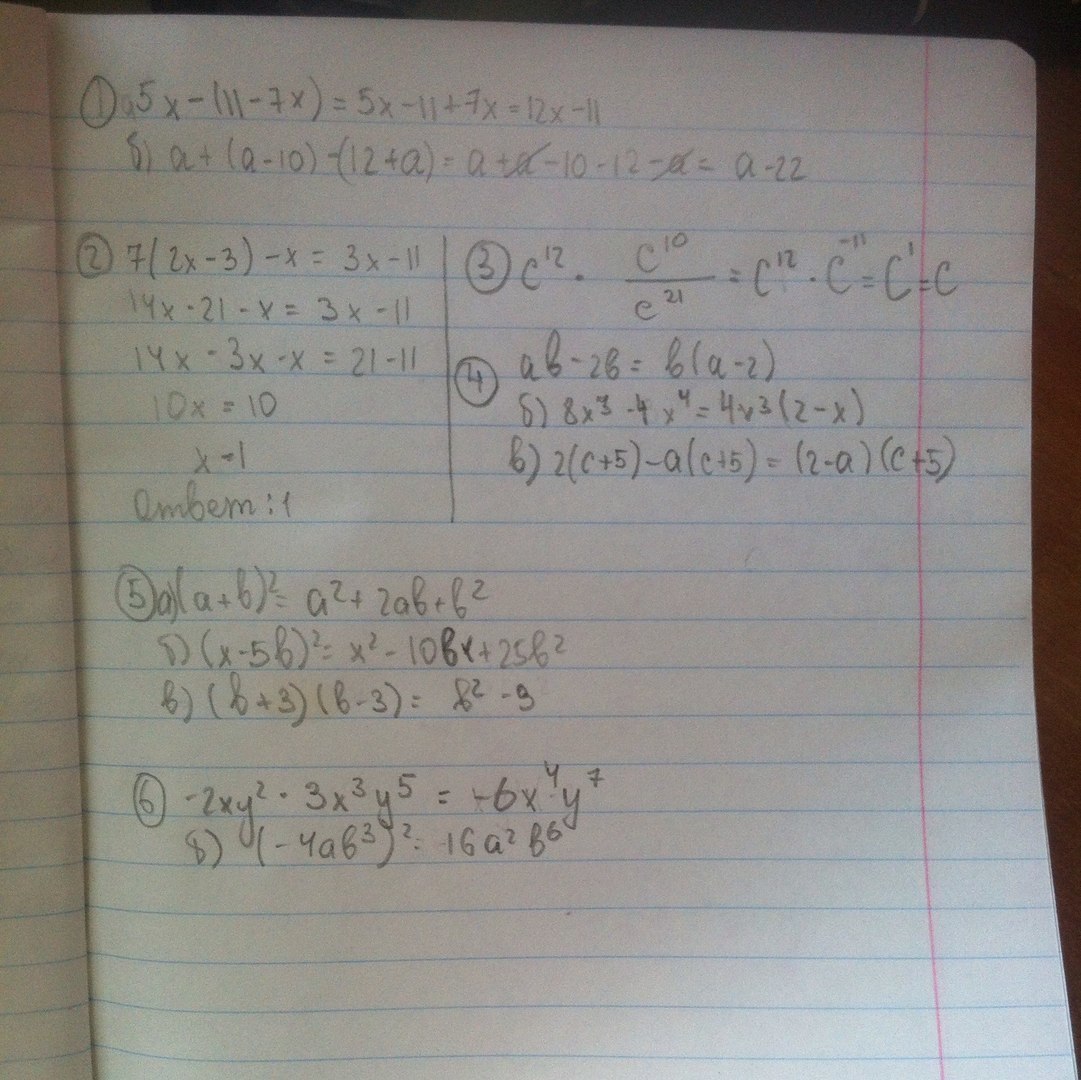 ① а) 5x - (11 - 7x) = 5x - 11 + 7x = 12x - 11
б) a + (a - 10) - (12 + a) = a + a - 10 - 12 - a = a - 22
② 7(2x - 3) - x = 3x - 11
14x - 21 - x = 3x - 11
14x - 3x - x = 21 - 11
10x = 10
x = 1
Ответ: 1
③ c¹² · c¹⁰/c²¹ = c¹² · c⁻¹¹ = c¹ = c
④ ab - 2b = b(a - 2)
б) 8x³ - 4x⁴ = 4x³(2 - x)
в) 2(c+5) - a(c+5) = (2-a)(c+5)
⑤ а) (a+b)² = a² + 2ab + b²
б) (x - 5b)² = x² - 10bx + 25b²
в) (b + 3)(b - 3) = b² - 9
⑥ -2xy² · 3x³y⁵ = -6x⁴y⁷
б) (-4ab³)² = 16a²b⁶